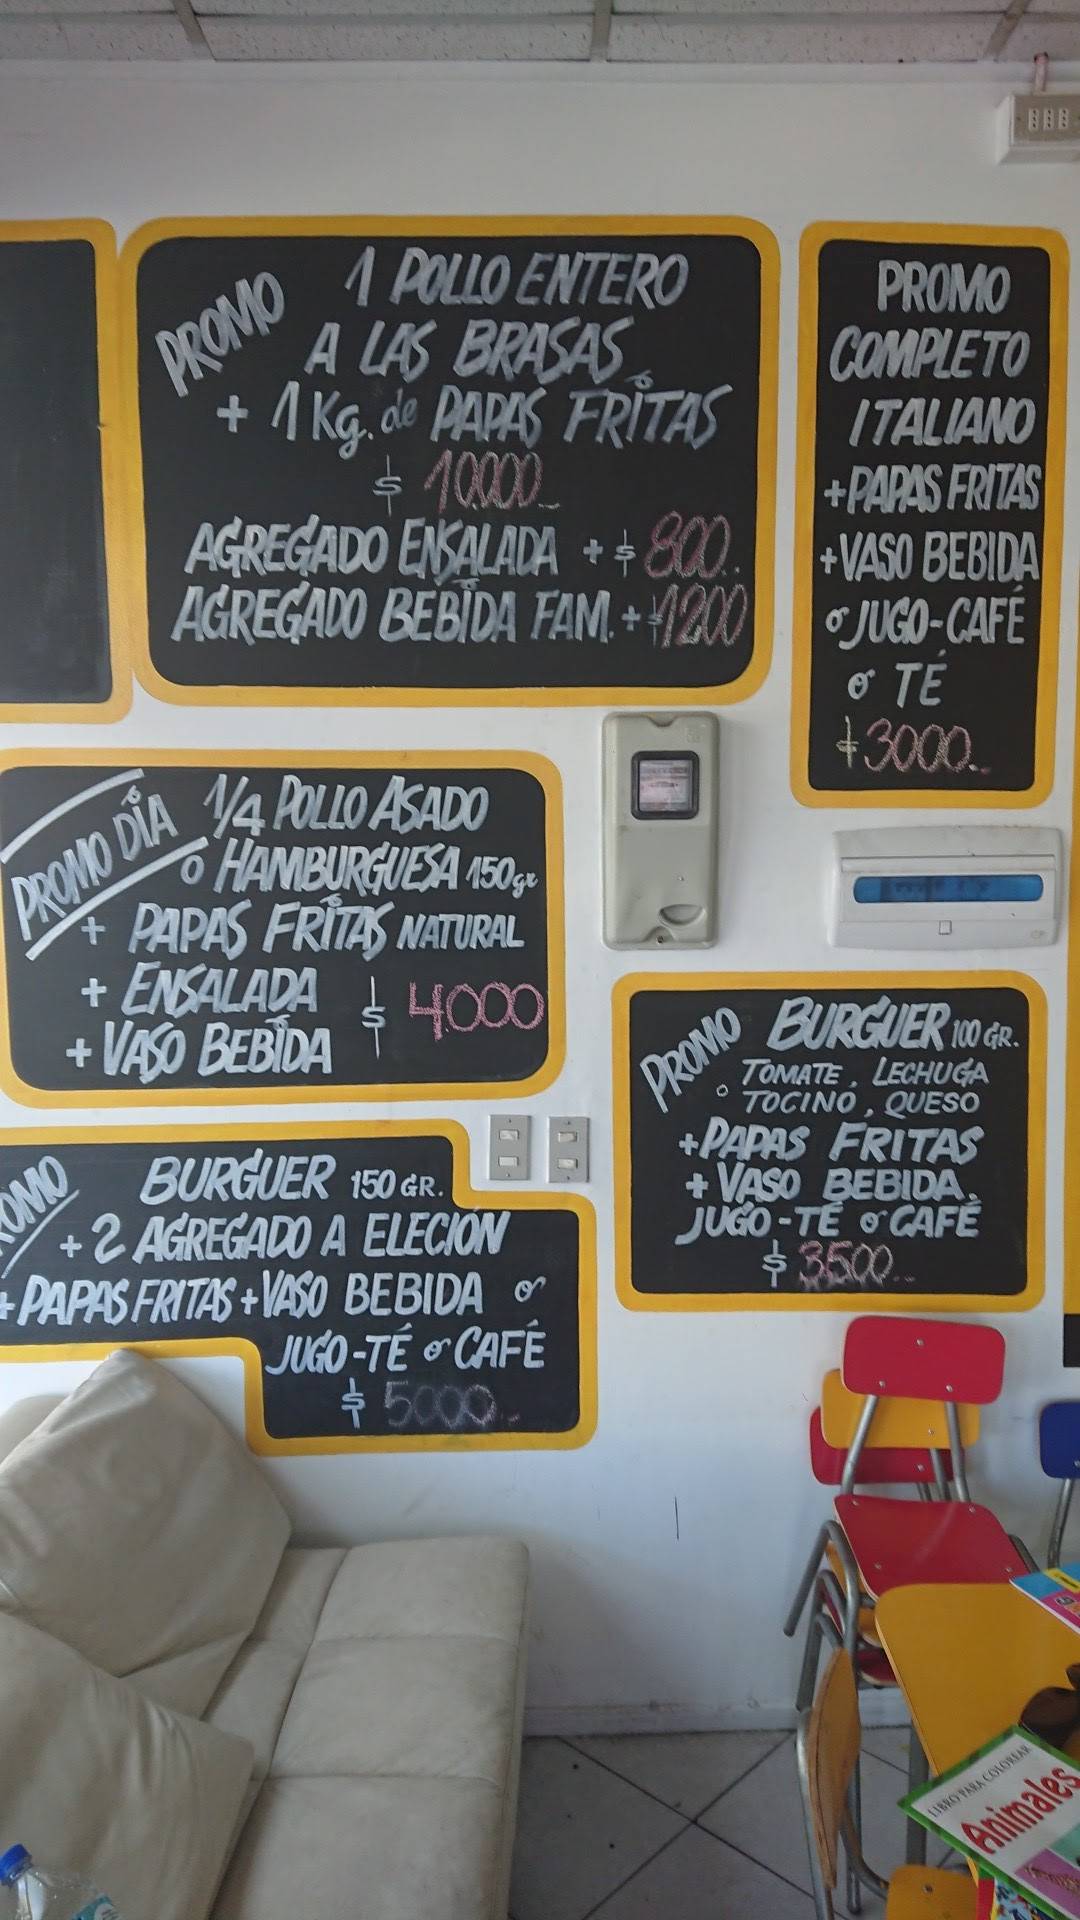 PROMO
1 POLLO ENTERO
A LAS BRASAS
+ 1Kg. de PAPAS FRITAS
$ 10.000..
AGREGADO ENSALADA + $ 800..
AGREGADO BEBIDA FAM. + $1200
PROMO
COMPLETO
ITALIANO
+PAPAS FRITAS
+VASO BEBIDA
o JUGO-CAFÉ
o TÉ
$3000..
PROMO DÍA
1/4 POLLO ASADO
o HAMBURGUESA 150gr
+ PAPAS FRITAS NATURAL
+ ENSALADA $ 4000
+ VASO BEBIDA
PROMO
BURGUER 100 GR.
TOMATE, LECHUGA
TOCINO, QUESO
+PAPAS FRITAS
+ VASO BEBIDA.
JUGO-TÉ o CAFÉ
$ 3.500..
BURGUER 150 GR.
+ 2 AGREGADO A ELECIÓN
+ PAPAS FRITAS + VASO BEBIDA o
JUGO-TÉ o CAFÉ
$ 5000..
LIBRO PARA COLOREAR
Animales